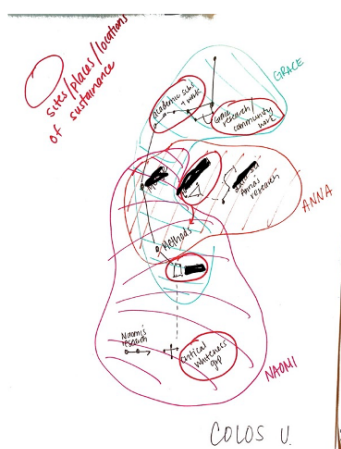 sites/places/locations
of sustenance
GRACE
academic
work
Grace
research/
community
work
Anna's
research
ANNA
Methods
Naomi's
research
critical
whiteness
grp
NAOMI
COLOS U.